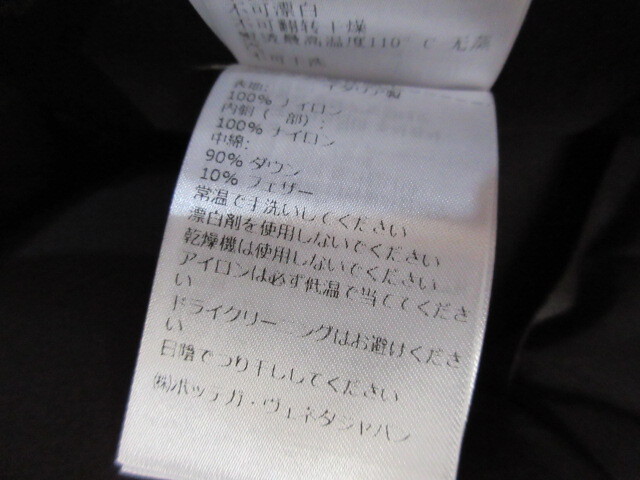 不可漂白
不可翻转干燥
熨烫最高温度110°C 无蒸
不可干洗
表地: イタリア製
100% ナイロン
内側(一部):
100% ナイロン
中綿:
90% ダウン
10% フェザー
常温で手洗いしてください
漂白剤を使用しないでください
乾燥機は使用しないでください
アイロンは必ず低温で当ててくださ
い
ドライクリーニングはお避けくださ
い
日陰でつり干ししてください
㈱ボッテガ・ヴェネタジャパン